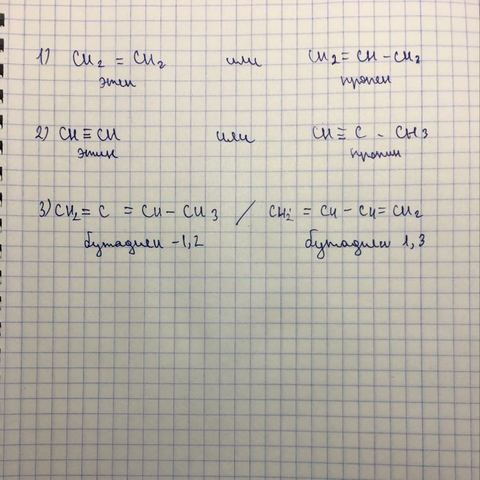 1) CH₂ = CH₂ или CH₂ = CH - CH₂
этен пропен
2) CH ≡ CH или CH ≡ C - CH3
этин пропин
3) CH₂ = C = CH - CH3 / CH₂ = CH - CH = CH₂
бутадиен -1,2 бутадиен 1,3